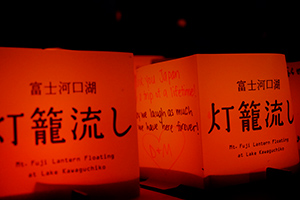 富士河口湖
灯籠流し
Mt. Fuji Lantern Floating
at Lake Kawaguchiko
you Japan
trip of a lifetime!
we laugh as much
we have here forever!
富士河口湖
灯籠流し
Mt. Fuji Lantern Floating
at Lake Kawaguchiko